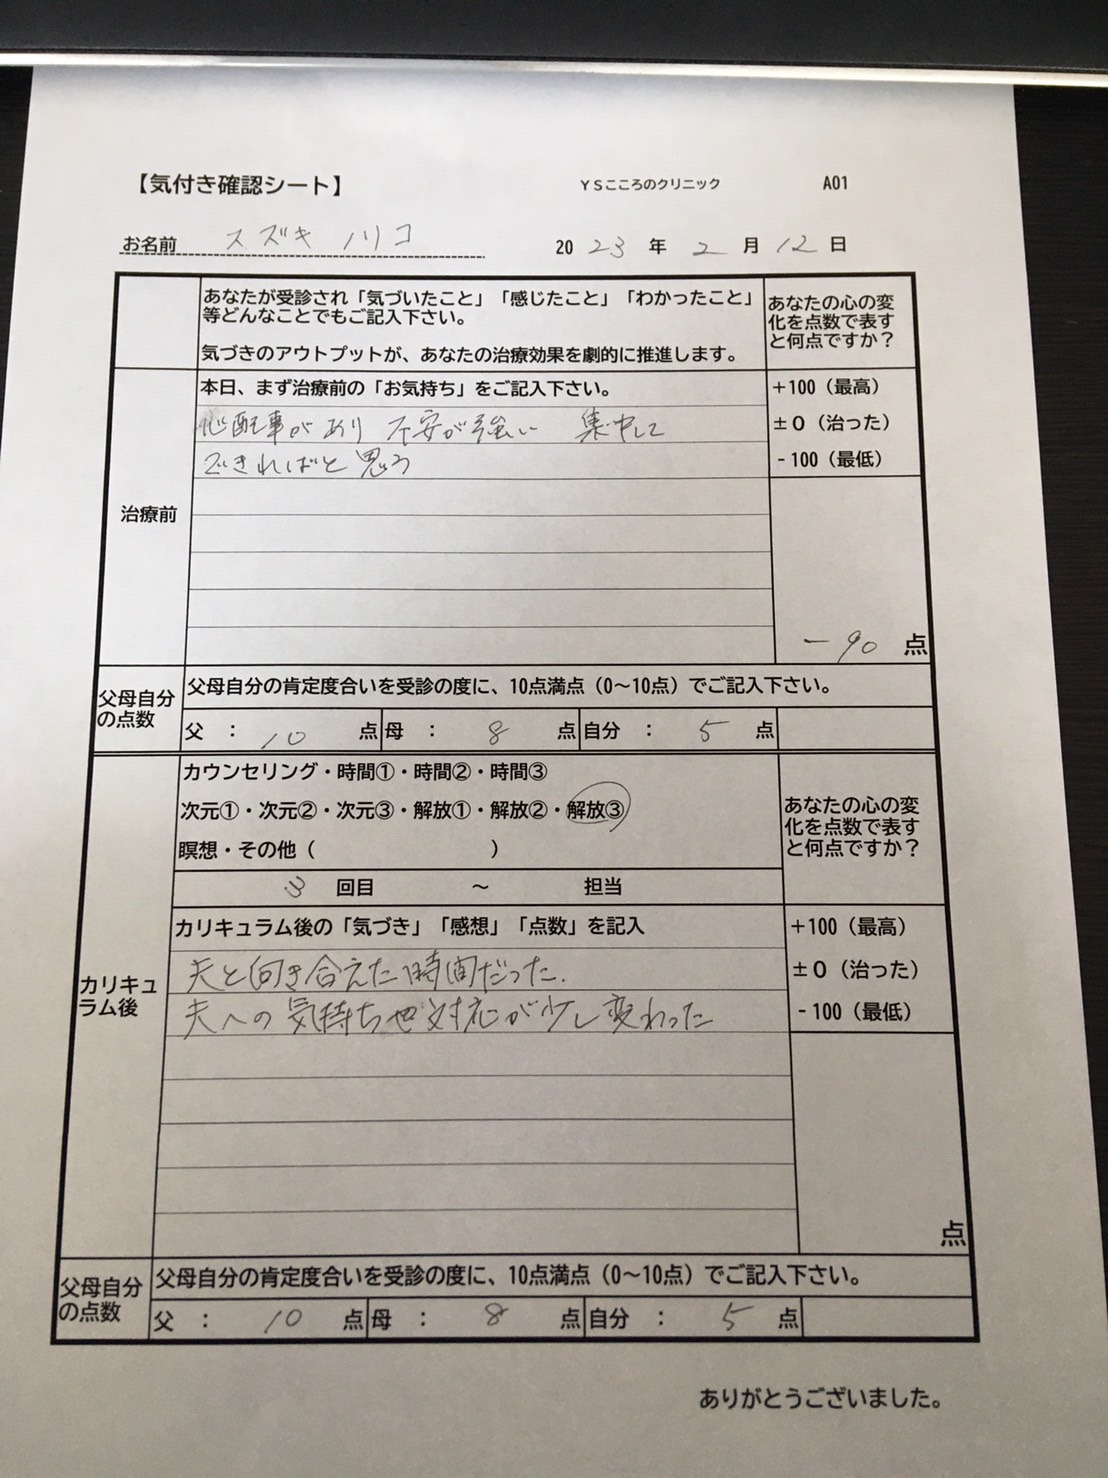 【気付き確認シート】 YSこころのクリニック A01
お名前 スズキ ノリコ 2023年2月12日
あなたが受診され「気づいたこと」「感じたこと」「わかったこと」
等どんなことでもご記入下さい。
気づきのアウトプットが、あなたの治療効果を劇的に推進します。
あなたの心の変
化を点数で表す
と何点ですか？
治療前
本日、まず治療前の「お気持ち」をご記入下さい。
心配事があり 不安が強い 集中して
できればと思う
+100（最高）
±0（治った）
-100（最低）
-90 点
父母自分
の点数
父母自分の肯定度合いを受診の度に、10点満点（0〜10点）でご記入下さい。
父 ： 10 点 母 ： 8 点 自分 ： 5 点
カリキュ
ラム後
カウンセリング・時間①・時間②・時間③
次元①・次元②・次元③・解放①・解放②・解放③
瞑想・その他（ ）
3 回目 〜 担当
あなたの心の変
化を点数で表す
と何点ですか？
カリキュラム後の「気づき」「感想」「点数」を記入
夫と向き合えた時間だった.
夫への気持ちや対応が少し変わった
+100（最高）
±0（治った）
-100（最低）
点
父母自分
の点数
父母自分の肯定度合いを受診の度に、10点満点（0〜10点）でご記入下さい。
父 ： 10 点 母 ： 8 点 自分 ： 5 点
ありがとうございました。